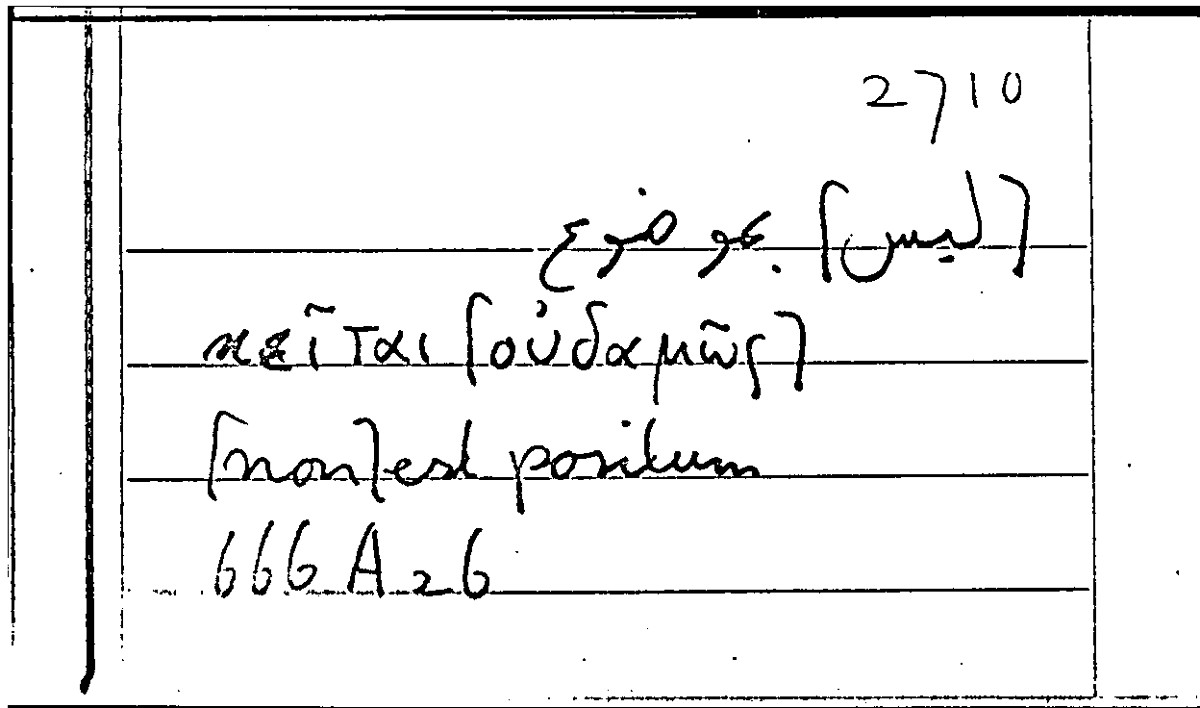 2710
[ليس] بموضوع
κεῖται [οὐδαμῶς]
[non] est positum
666 A 26